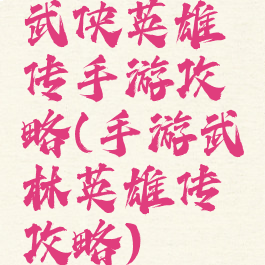 武侠英雄
传手游攻
略(手游武
林英雄传
攻略)